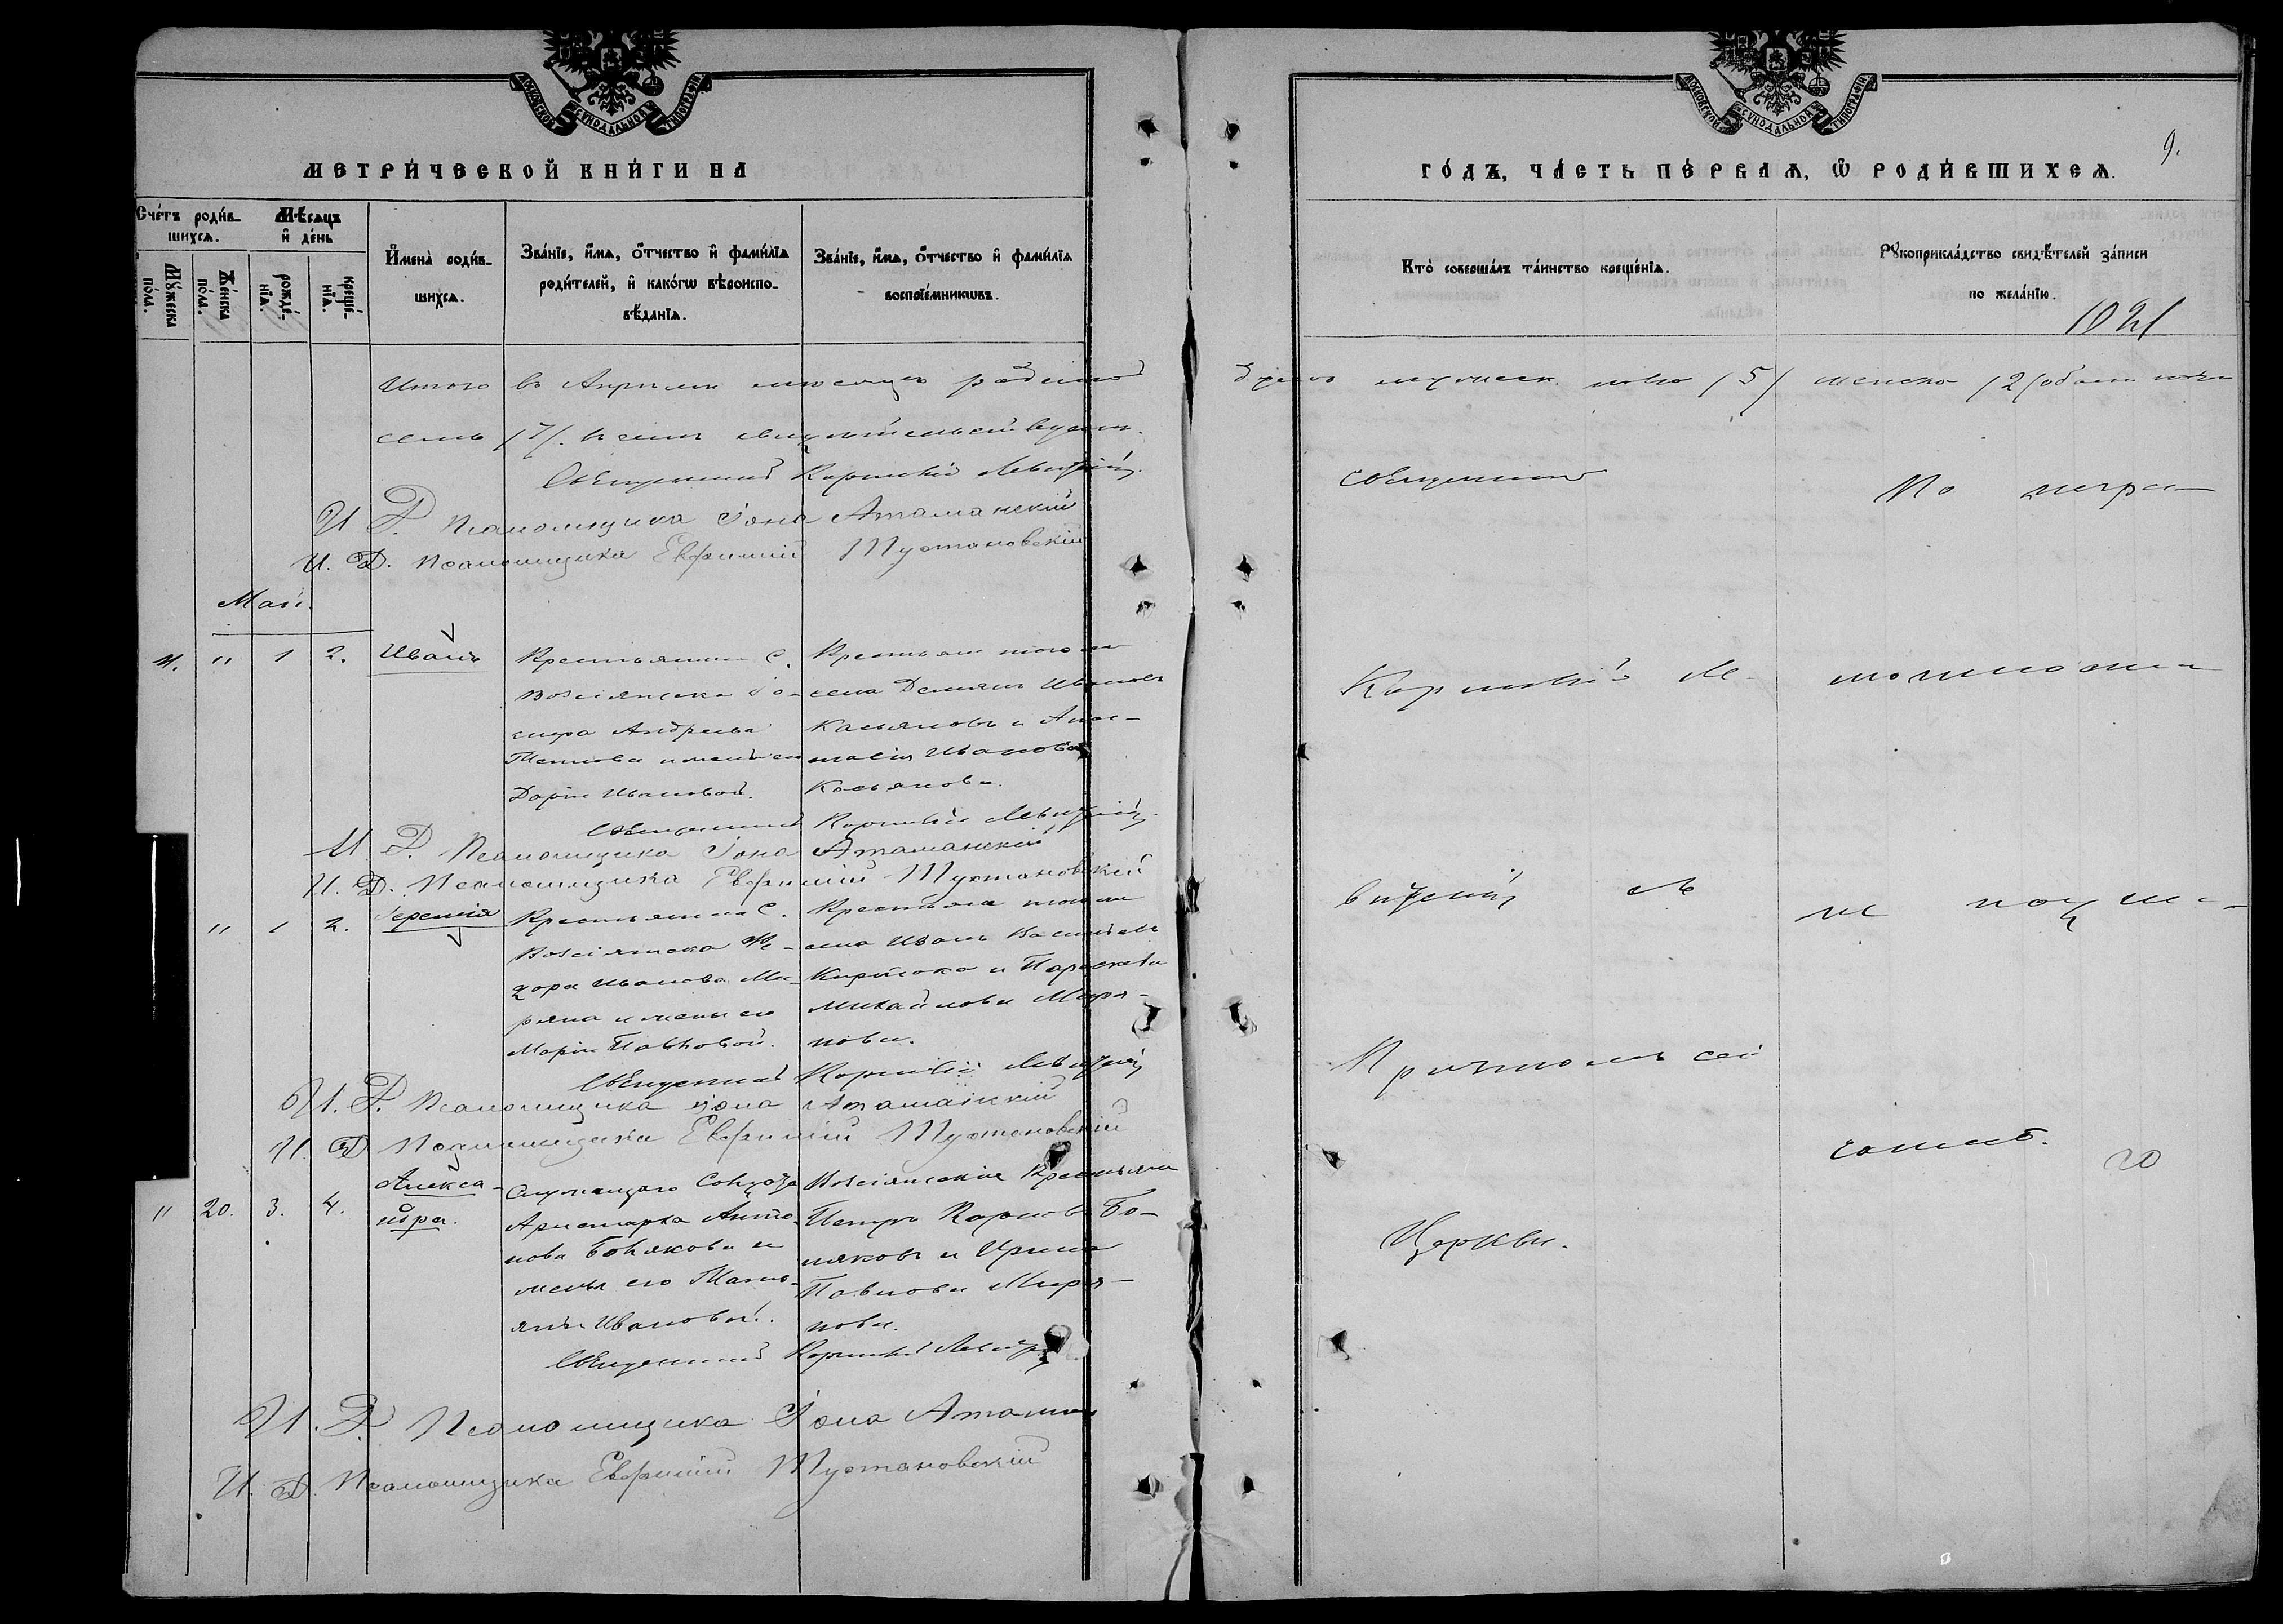 МОСКОВСКОЙ СѴНОДАЛЬНОЙ ТИПОГРАФІИ
МЕТРИ́ЧЕСКОЙ КНИ́ГИ НА
Сче́тъ роди́в-
шихсѧ.
Мѣ́сѧцъ
и҆ де́нь
Мꙋ́жеска
по́ла.
Же́нска
по́ла.
рожде́-
нїѧ.
креще́-
нїѧ.
И҆мена̀ роди́в-
шихсѧ.
Зва́нїе, и҆́мѧ, ѻ҆́тчество и҆ фами́лїѧ
роди́телей, и҆ како́гѡ вѣроиспо-
вѣ́данїѧ.
Зва́нїе, и҆́мѧ, ѻ҆́тчество и҆ фами́лїѧ
воспрїе́мникѡвъ.
Итого въ Апрѣлѣ мѣсяцѣ
семь /7/. въ чемъ свидѣтельствуемъ.
Священникъ Корнилій Левицкій.
И. Д. Псаломщика Іона Атаманскій
И. Д. Псаломщика Евфимій Тустановскій
Май.
" 1 2. Иванъ
Крестьянинъ С.
Возсіятска Іо-
сифа Андреева
и жены его
Даріи Ивановой.
Крестьяне того же
села Демянъ Ивановъ
Касьяновъ и Анас-
тасія Иванова
Касьянова.
Священникъ Корнилій Левицкій.
И. Д. Псаломщика Іона Атаманскій
И. Д. Псаломщика Евфимій Тустановскій
" 1 2. Іеремія
Крестьянина С.
Возсіятска Фе-
дора Иванова Ми-
ряна и жены его
Маріи Павловой.
Крестьяне того же
села Иванъ Васильевъ
и Параскева
Михайлова Миря-
нова.
Священникъ Корнилій Левицкій
И. Д. Псаломщика Іона Атаманскій
И. Д. Псаломщика Евфимій Тустановскій
" 20. 3. 4. Алекса-
ндра.
Служащаго Солдата
Аристарха Анто-
нова и
жены его Татья-
яны Ивановой.
Возсіятскія Крестьяне
Петръ Карповъ Бо-
няковъ и Ирина
Павлова Миря-
нова.
Священникъ Корнилій
И. Д. Псаломщика Іона
И. Д. Псаломщика Евфимій Тустановскій
МОСКОВСКОЙ СѴНОДАЛЬНОЙ ТИПОГРАФІИ
9.
ГО́ДЪ, ЧА́СТЬ ПЕ́РВАѦ, Ѡ҆ РОДИ́ВШИХСѦ.
Кто̀ соверша́лъ та́инство креще́нїѧ.
Рꙋкоприкла́дство свидѣ́телей за́писи
по жела́нїю.
мужеск. пола /5/ женска /2/ обоего пола
Священникъ
По негра-
Корнилій Ле-
мотности
вицкій съ
не подпи-
Причтомъ сей
саны.
20
Церкви.